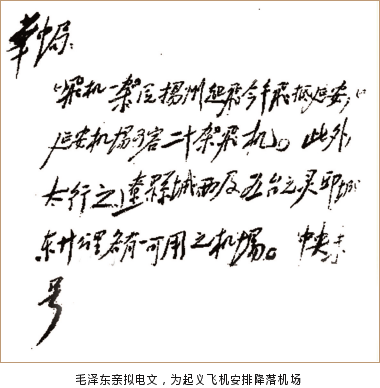 华中局:
"飞机一架从扬州起飞今午飞抵延安,"
延安机场可容二十架飞机。此外,
太行之辽县城西及五台之灵邱城
东廿里各有一可用之机场。中央
号
毛泽东亲拟电文，为起义飞机安排降落机场